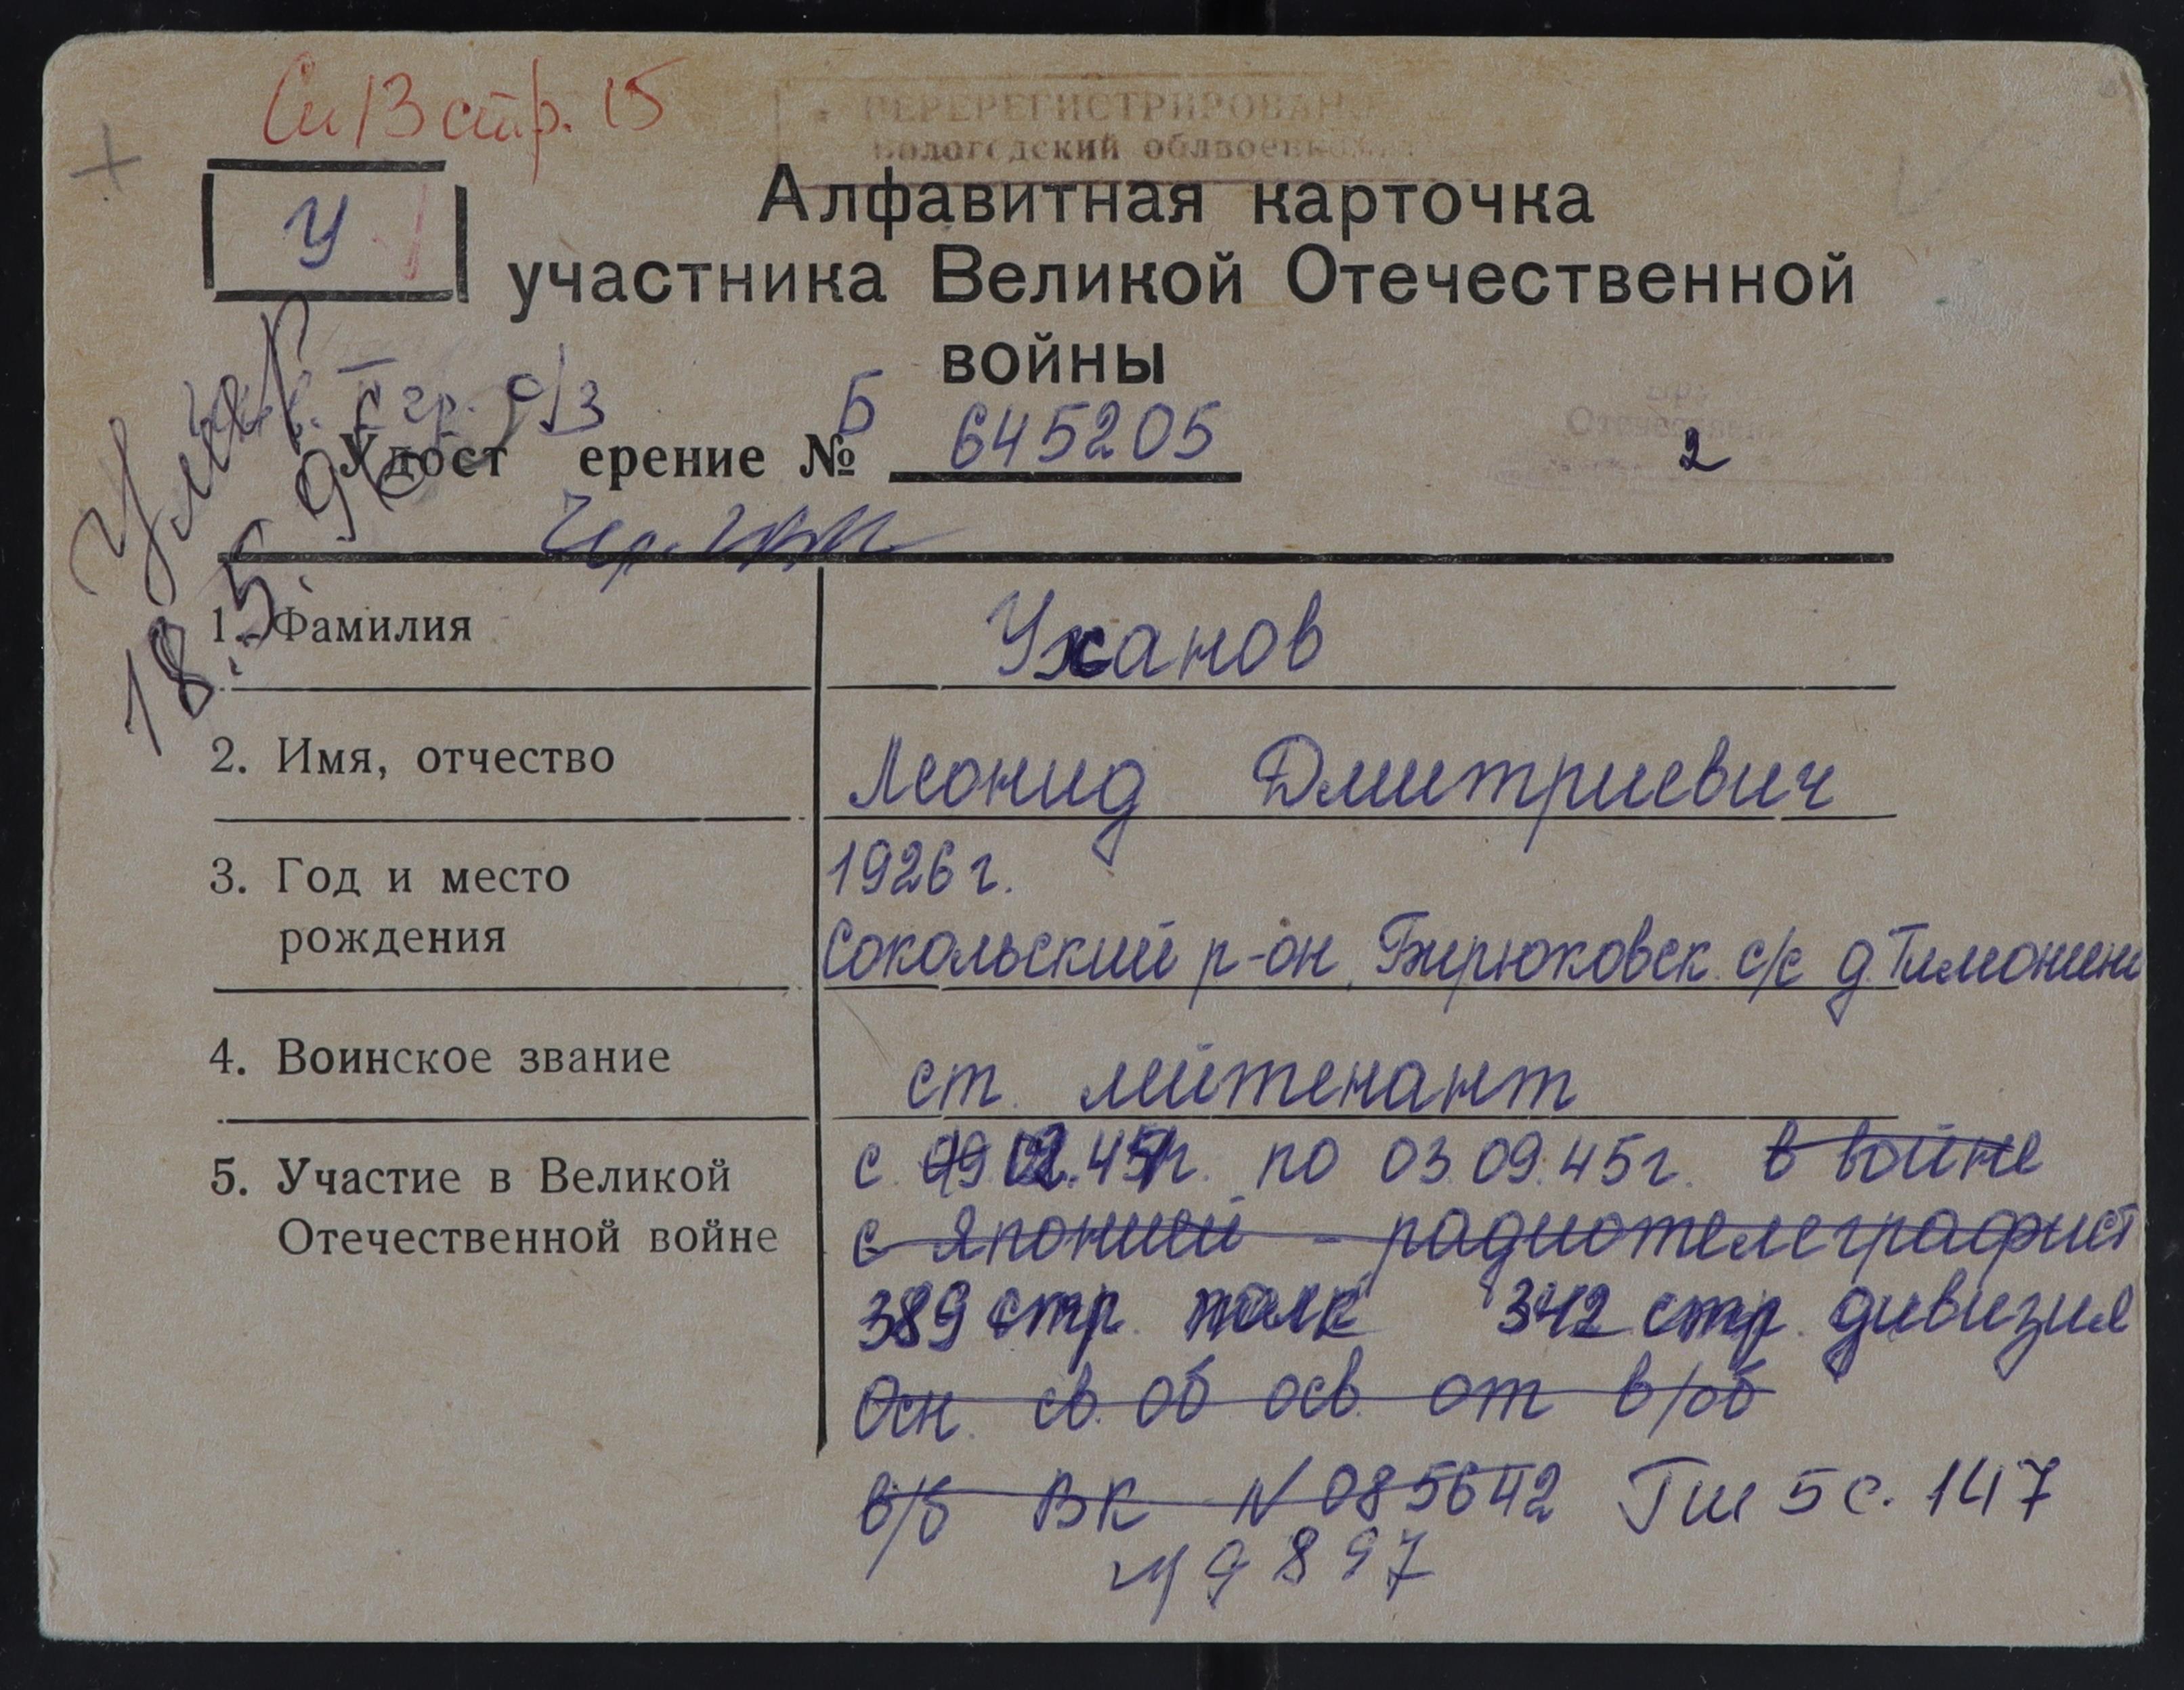 стр. 15
ПЕРЕРЕГИСТРИРОВАН
Вологодский облвоенком
У
Алфавитная карточка
участника Великой Отечественной
войны
Умер
18.5.96
II гр. о/з
Удостоверение № Б 645205
2
1. Фамилия
Уханов
2. Имя, отчество
Леонид Дмитриевич
3. Год и место
рождения
1926 г.
Сокольский р-он, Бирюковск. с/с д. Тимонин
4. Воинское звание
ст. лейтенант
5. Участие в Великой
Отечественной войне
с по 03.09.45 г. в войне
с Японией - радиотелеграфист
389 стр. полк 342 стр. дивизия
Осн. св. об осв. от в/об
в/б ВК N 085642 Гш 5 с. 147
9897